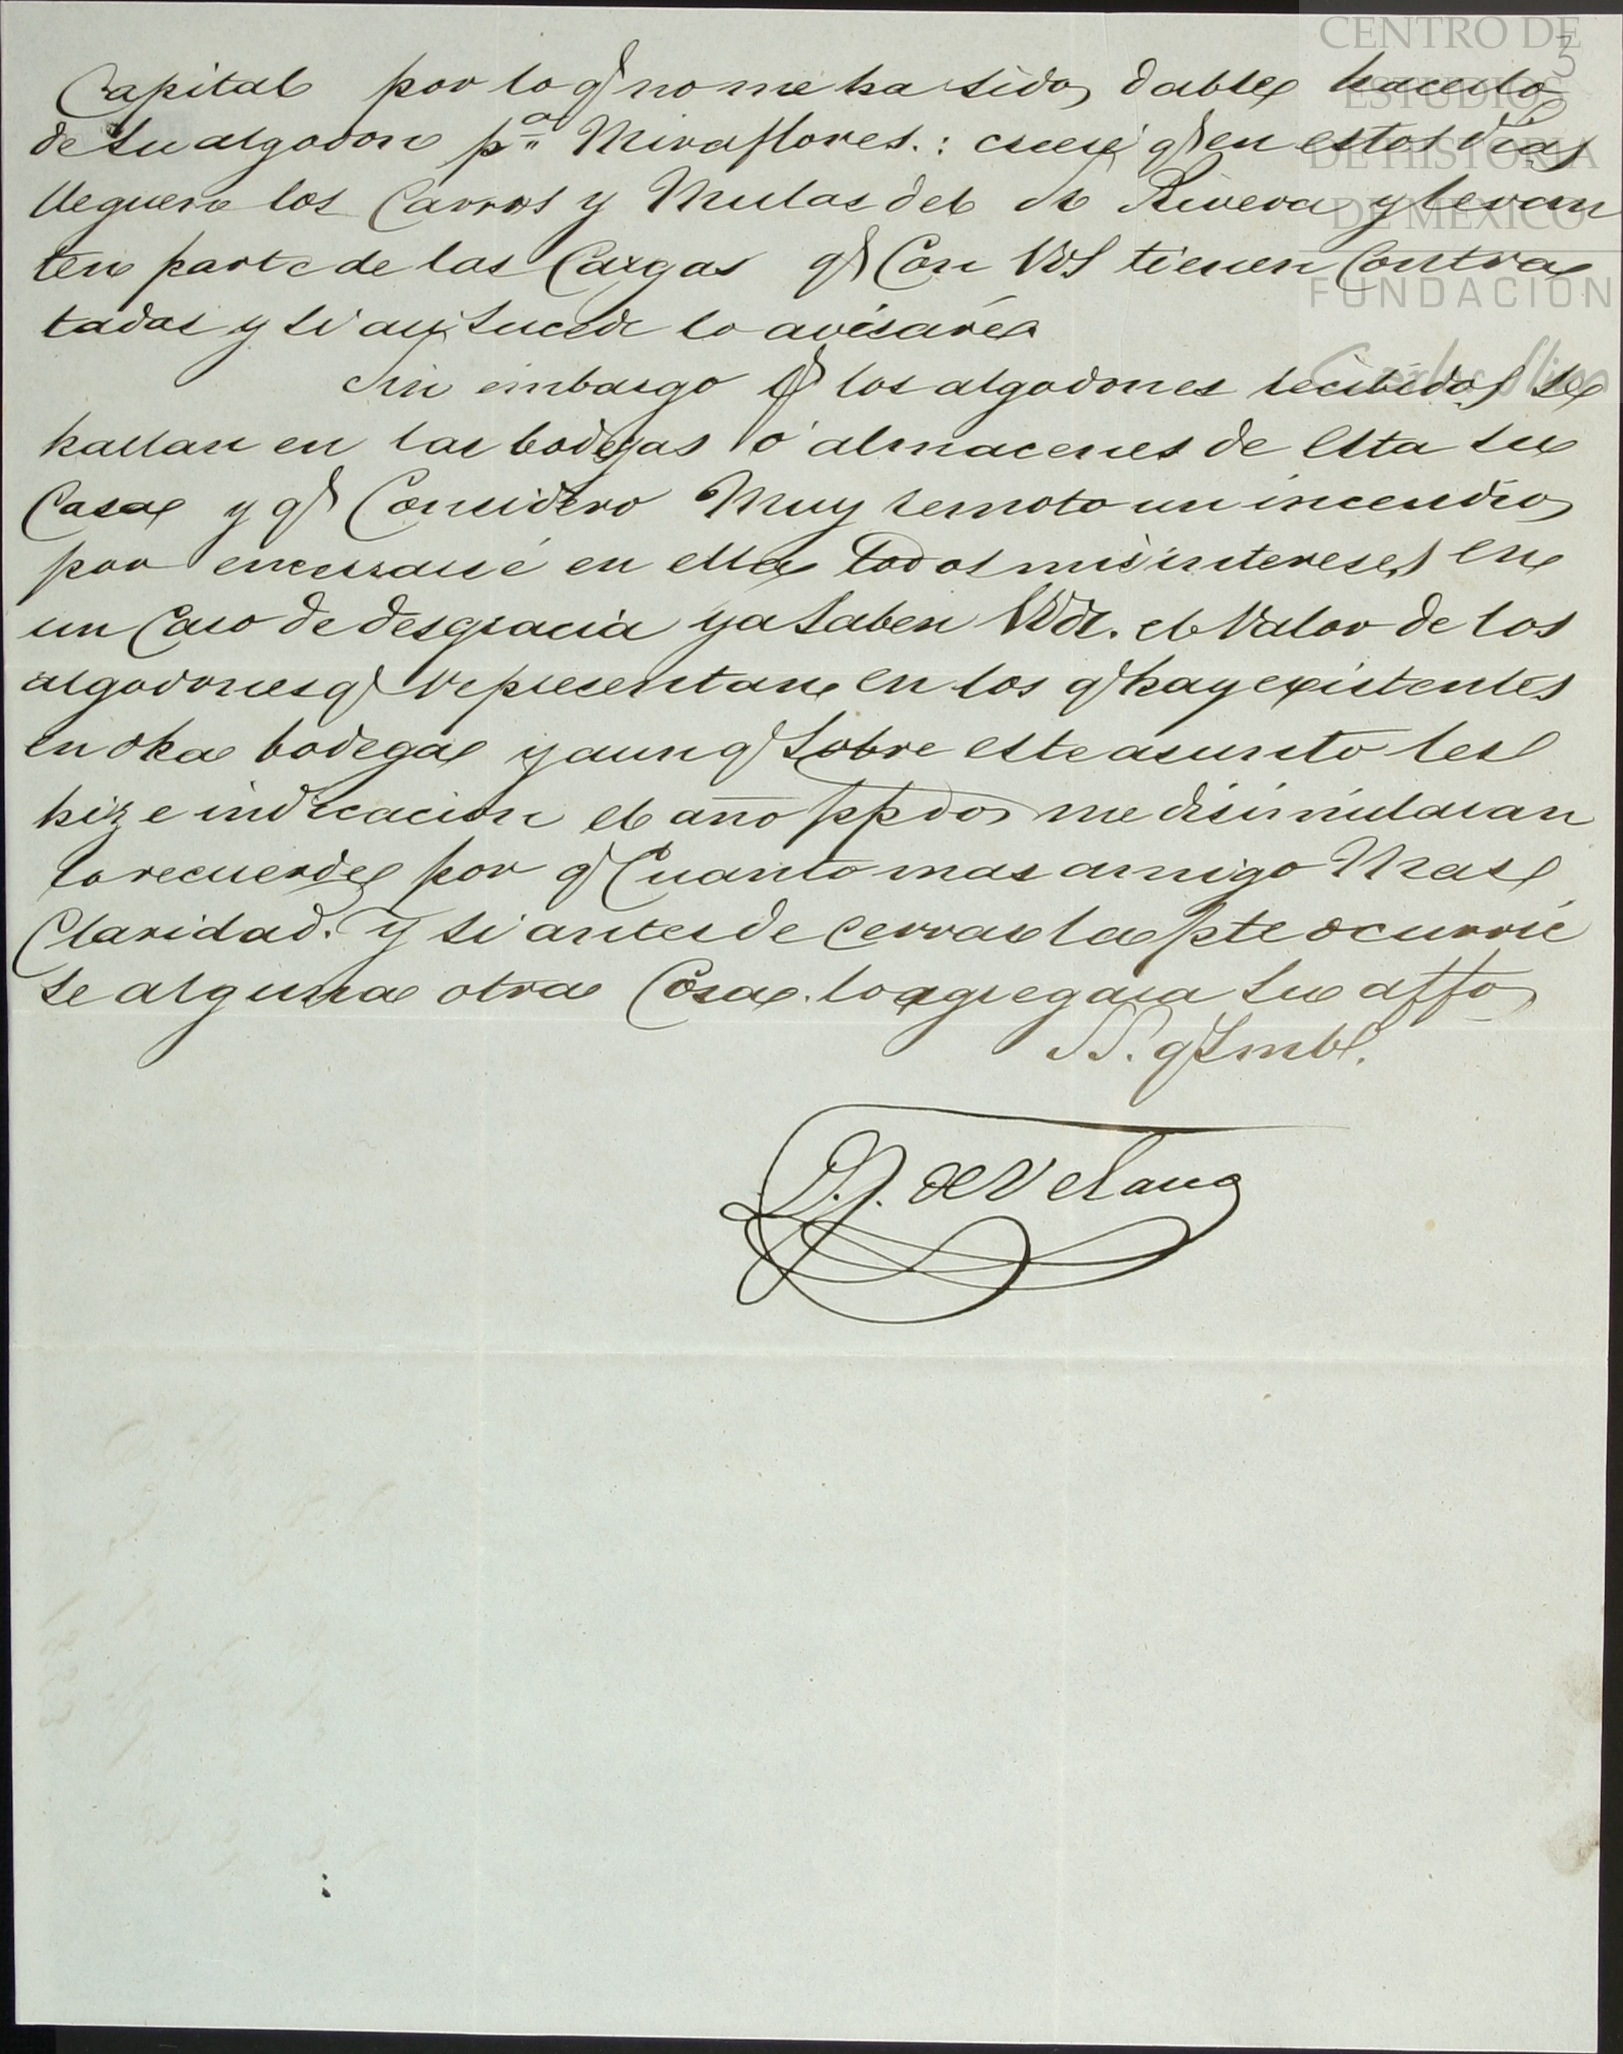 CENTRO DE
ESTUDIOS
DE HISTORIA
DE MEXICO
FUNDACION
Carlos Slim
3
Capital por lo q no me ha sido dable hacerlo
de su algodon pa Miraflores.: creere q en estos dias
lleguen los Carros y Mulas del Sr Rivera y levan
ten parte de las Cargas q Con VdS tienen Contra
tadas y si asi sucede lo avisaré
Sin embargo q los algodones recibidos se
hallan en las bodegas ó almacenes de esta su
Casa y q Considero Muy remoto un incendio
por en ella todos mis intereses en
un Caso de desgracia ya saben VVds. el Valor de los
algodones q representan en los q hay existentes
en dha bodega y aunq sobre este asunto les
hize indicacion el año ppdo me disimularan
lo recuerde por q Cuanto mas amigo Mas
Claridad. Y si antes de cerrar la pte ocurrie
se alguna otra Cosa. lo agregara su affo
SS. q S m b S.
de Velasco